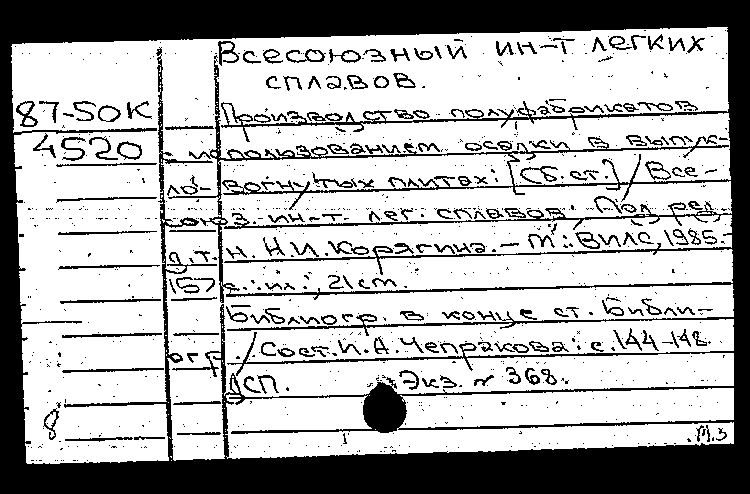 Всесоюзный ин-т легких
сплавов.
87-50К
4520
Производство полуфабрикатов
с использованием осадки в выпук-
ло-вогнутых плитах: [Сб. ст.] / Все-
союз. ин-т. лег. сплавов; Под ред.
д.т.н. Н.И. Корягина. – М.: ВИЛС, 1985. –
157 с.: ил.; 21 см.
Библиогр. в конце ст. Библи-
огр. / Сост. И.А. Чепракова: с. 144-148.
ДСП. Экз. № 368.
8